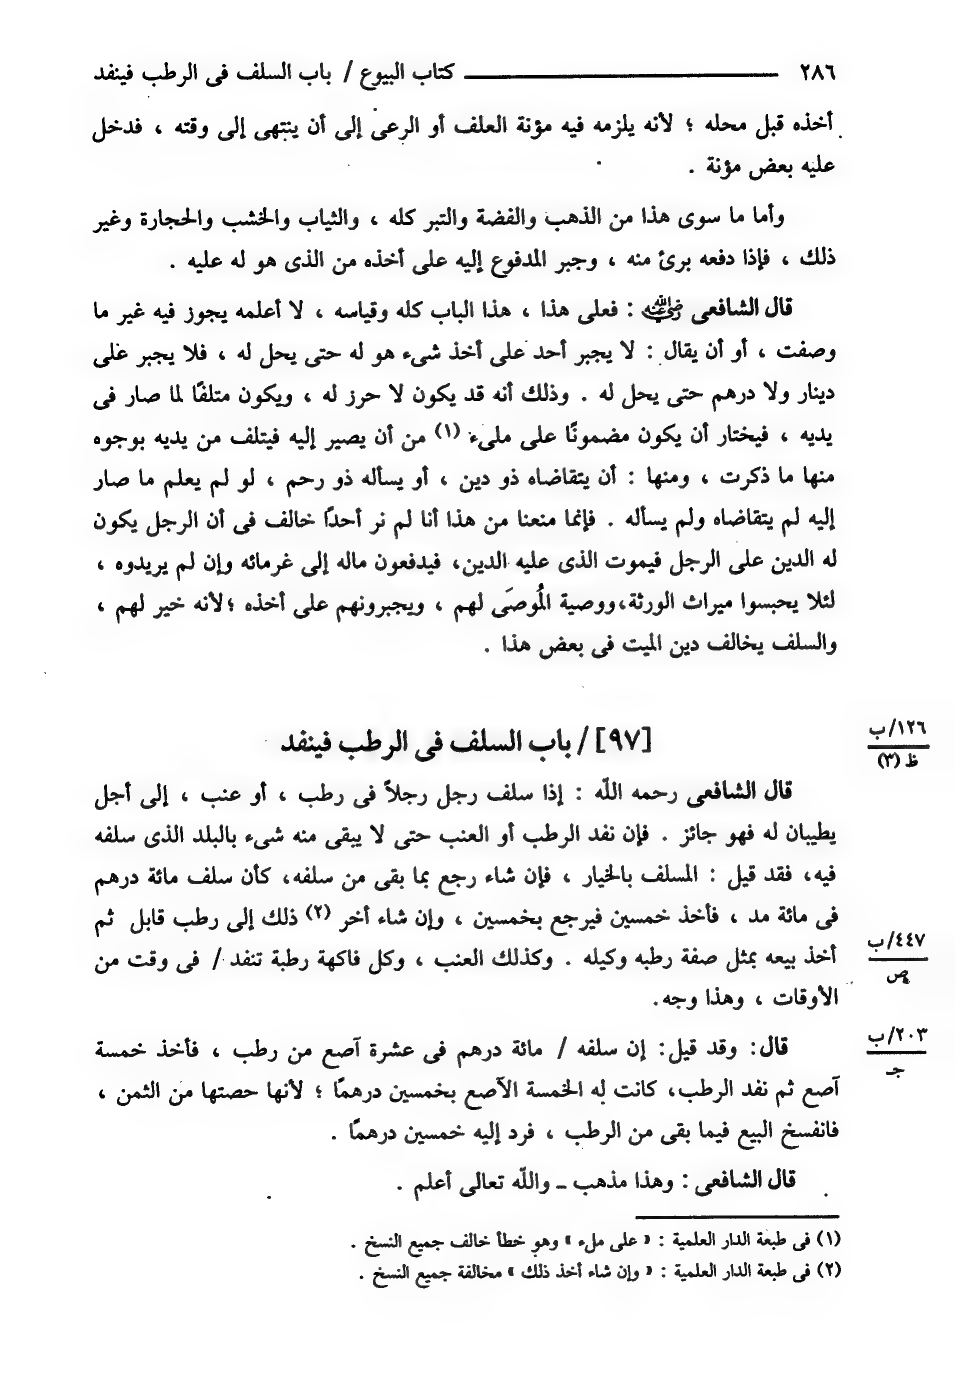 ٢٨٦ كتاب البيوع / باب السلف فى الرطب فينفد
أخذه قبل محله ؛ لأنه يلزمه فيه مؤنة العلف أو الرعى إلى أن ينتهى إلى وقته ، فدخل
عليه بعض مؤنة .
وأما ما سوى هذا من الذهب والفضة والتبر كله ، والثياب والخشب والحجارة وغير
ذلك ، فإذا دفعه برئ منه ، وجبر المدفوع إليه على أخذه من الذى هو له عليه .
قال الشافعى رضي الله عنه : فعلى هذا ، هذا الباب كله وقياسه ، لا أعلمه يجوز فيه غير ما
وصفت ، أو أن يقال : لا يجبر أحد على أخذ شىء هو له حتى يحل له ، فلا يجبر على
دينار ولا درهم حتى يحل له . وذلك أنه قد يكون لا حرز له ، ويكون متلفًا لما صار فى
يديه ، فيختار أن يكون مضمونًا على ملىء (١) من أن يصير إليه فيتلف من يديه بوجوه
منها ما ذكرت ، ومنها : أن يتقاضاه ذو دين ، أو يسأله ذو رحم ، لو لم يعلم ما صار
إليه لم يتقاضاه ولم يسأله . فإنما منعنا من هذا أنا لم نر أحدًا خالف فى أن الرجل يكون
له الدين على الرجل فيموت الذى عليه الدين، فيدفعون ماله إلى غرمائه وإن لم يريدوه ،
لئلا يحبسوا ميراث الورثة،ووصية المُوصَى لهم ، ويجبرونهم على أخذه ؛لأنه خير لهم ،
والسلف يخالف دين الميت فى بعض هذا .
[٩٧] / باب السلف فى الرطب فينفد
١٢٦/ب
ظ (٣)
قال الشافعى رحمه الله : إذا سلف رجل رجلاً فى رطب ، أو عنب ، إلى أجل
يطيبان له فهو جائز . فإن نفد الرطب أو العنب حتى لا يبقى منه شىء بالبلد الذى سلفه
فيه، فقد قيل : المسلف بالخيار ، فإن شاء رجع بما بقى من سلفه، كأن سلف مائة درهم
فى مائة مد ، فأخذ خمسين فيرجع بخمسين ، وإن شاء أخر (٢) ذلك إلى رطب قابل ثم
أخذ بيعه بمثل صفة رطبه وكيله . وكذلك العنب ، وكل فاكهة رطبة تنفد / فى وقت من
٤٤٧/ب
ص
الأوقات ، وهذا وجه.
قال: وقد قيل: إن سلفه / مائة درهم فى عشرة آصع من رطب ، فأخذ خمسة
٢٠٣/ب
جـ
آصع ثم نفد الرطب، كانت له الخمسة الآصع بخمسين درهمًا ؛ لأنها حصتها من الثمن ،
فانفسخ البيع فيما بقى من الرطب ، فرد إليه خمسين درهمًا .
قال الشافعى : وهذا مذهب ـ والله تعالى أعلم .
(١) فى طبعة الدار العلمية : « على ملء » وهو خطأ خالف جميع النسخ .
(٢) فى طبعة الدار العلمية : « وإن شاء أخذ ذلك » مخالفة جميع النسخ .